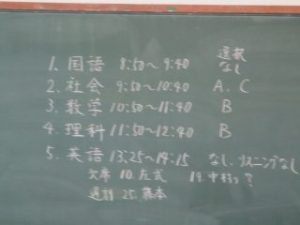 選択
1. 国語 8:50〜9:40 なし
2. 社会 9:50〜10:40 A, C
3. 数学 10:50〜11:40 B
4. 理科 11:50〜12:40 B
5. 英語 13:25〜14:15 なし, リスニングなし
欠席 10. 19.
25.